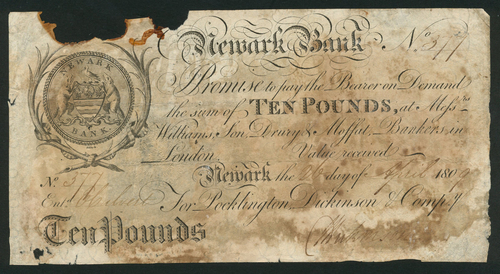 NEWARK
BANK
Newark Bank
No. 377
Promise to pay the Bearer on Demand
the sum of TEN POUNDS, at Messrs.
Williams, Son, Drury & Moffat, Bankers in
London. Value received
Newark the day of April 180
No. 377
Entd.
For Pocklington Dickinson & Compy.
Ten Pounds